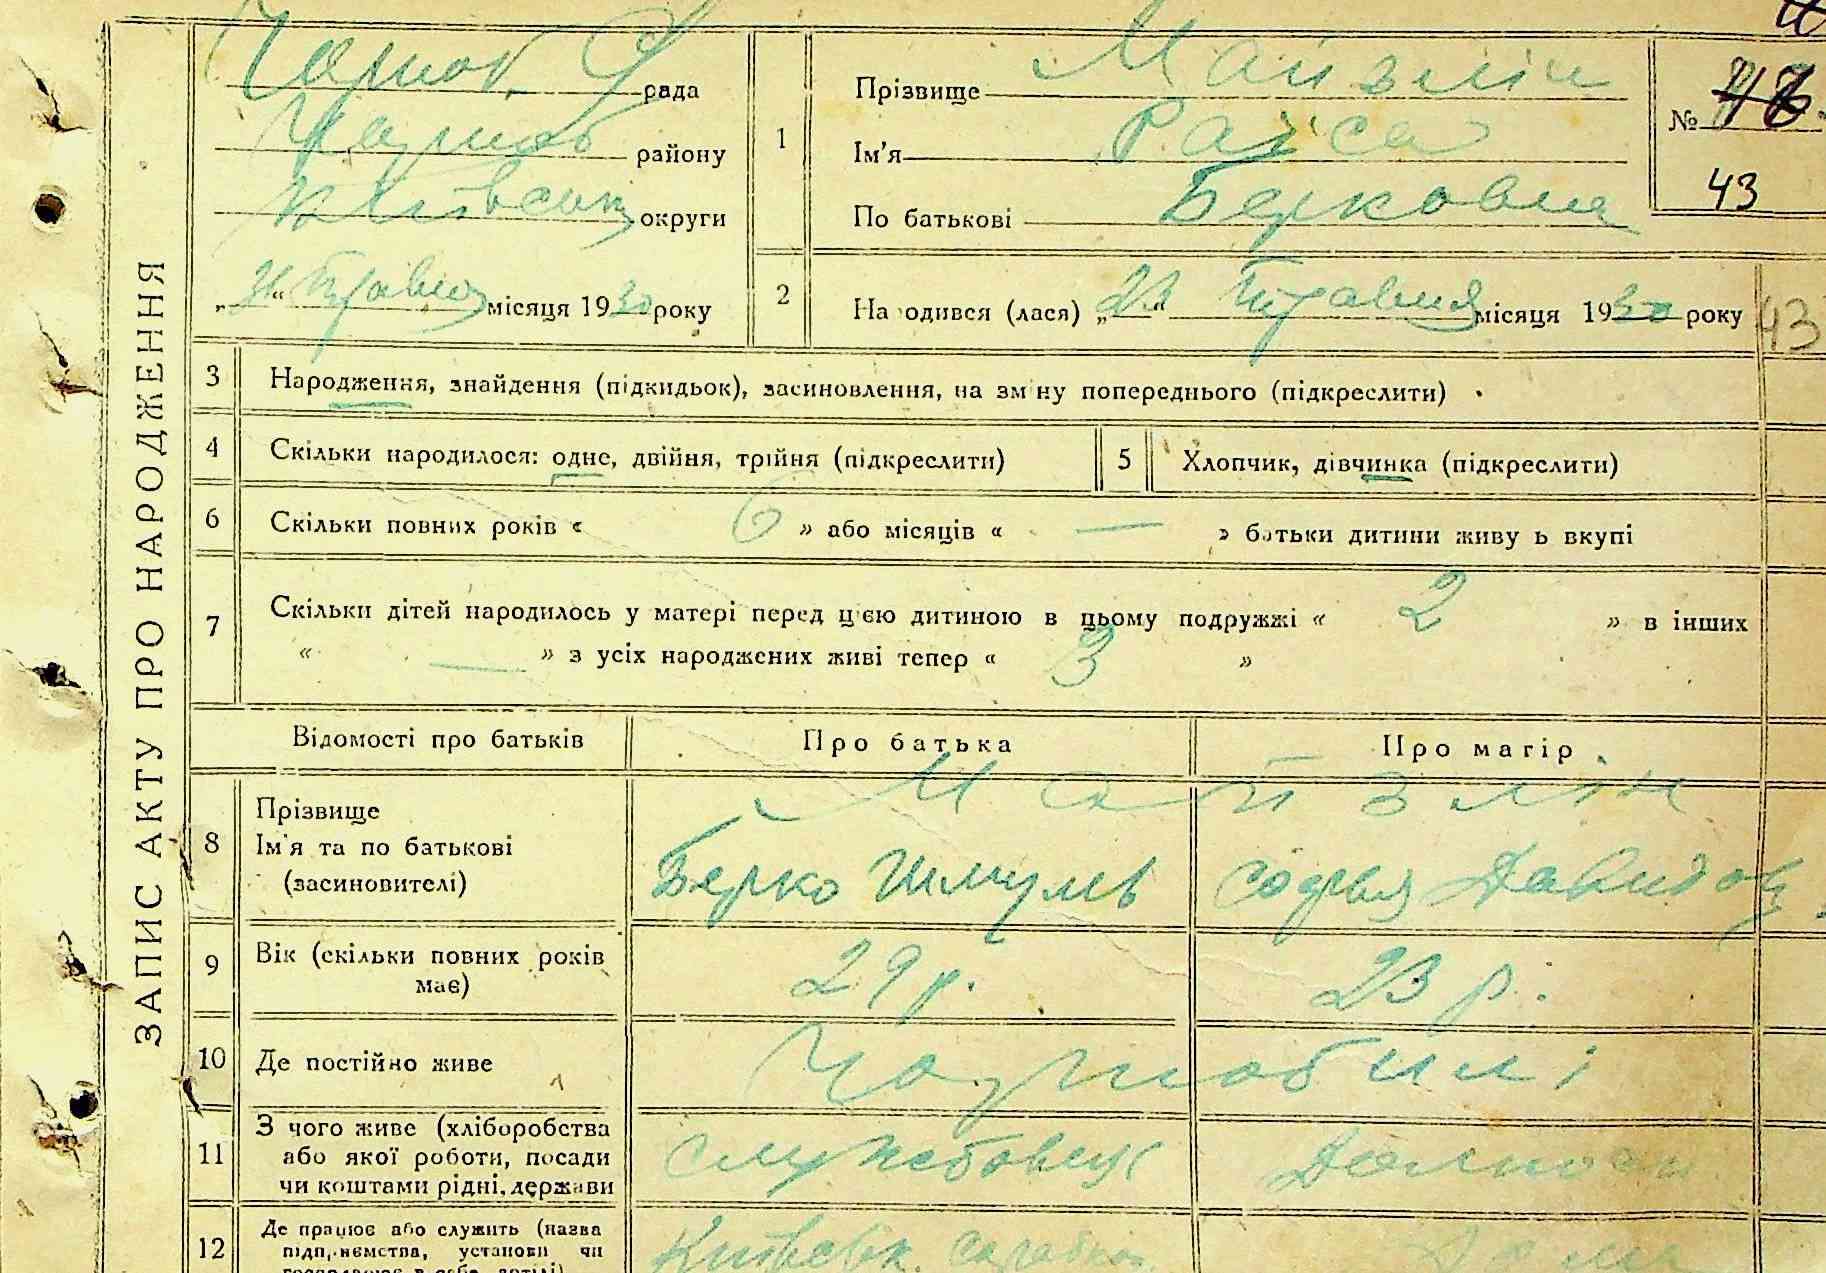 ЗАПИС АКТУ ПРО НАРОДЖЕННЯ
Чорноб. рада
Чорноб району
Київськ округи
" " Травня місяця 1930 року
1
Прізвище Майзлін
Ім'я Раїса
По батькові Берковна
№ 43
2
На одився (лася) „23“ Травня місяця 1930 року
43
3 Народження, знайдення (підкидьок), засиновлення, на зм ну попереднього (підкреслити)
4 Скільки народилося: одне, двійня, трійня (підкреслити) 5 Хлопчик, дівчинка (підкреслити)
6 Скільки повних років « 6 » або місяців « — » батьки дитини живу ь вкупі
7 Скільки дітей народилось у матері перед цією дитиною в цьому подружжі « 2 » в інших
« — » з усіх народжених живі тепер « 3 »
Відомості про батьків Про батька Про матір
Майзлін
8 Прізвище
Ім'я та по батькові
(засиновителі)
Берко Шмулев Софья Давидов
9 Вік (скільки повних років
має)
29 р. 23 р.
10 Де постійно живе Чорнобилі
11 З чого живе (хліборобства
або якої роботи, посади
чи коштами рідні, держави
службовец
12 Де працює або служить (назва
підпр немства, установи чи